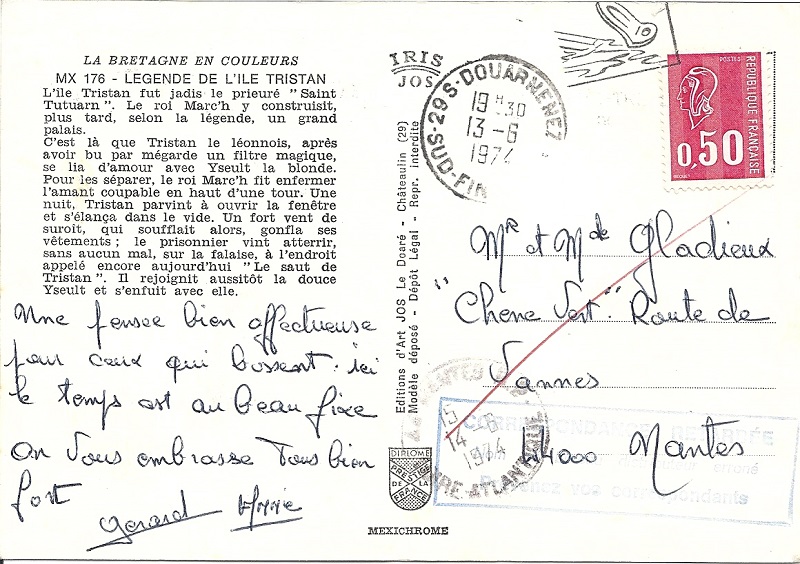 LA BRETAGNE EN COULEURS
MX 176 - LEGENDE DE L'ILE TRISTAN
L'île Tristan fut jadis le prieuré " Saint
Tutuarn ". Le roi Marc'h y construisit,
plus tard, selon la légende, un grand
palais.
C'est là que Tristan le léonnois, après
avoir bu par mégarde un filtre magique,
se lia d'amour avec Yseult la blonde.
Pour les séparer, le roi Marc'h fit enfermer
l'amant coupable en haut d'une tour. Une
nuit, Tristan parvint à ouvrir la fenêtre
et s'élança dans le vide. Un fort vent de
suroît, qui soufflait alors, gonfla ses
vêtements ; le prisonnier vint atterrir,
sans aucun mal, sur la falaise, à l'endroit
appelé encore aujourd'hui " Le saut de
Tristan ". Il rejoignit aussitôt la douce
Yseult et s'enfuit avec elle.
Une pensée bien affectueuse
pour ceux qui bossent. ici
le temps est au beau fixe
on vous embrasse tous bien
fort
Gérard Annie
IRIS
JOS
Editions d'Art JOS Le Doaré - Châteaulin (29)
Modèle déposé - Dépôt Légal - Repr. interdite
DIPLOME
PRESTIGE
DE LA
FRANCE
MEXICHROME
29 S-DOUARNENEZ
SUD-FIN
19 H 30
13-6
1974
POSTES
REPUBLIQUE FRANÇAISE
0,50
Mr et Mde Gladieux
"Chene Vert" Route de
Vannes
44000 Nantes
14-6
1974
LOIRE-ATLANTIQUE
CORRESPONDANCE RETARDEE
erroné
Prévenez vos correspondants